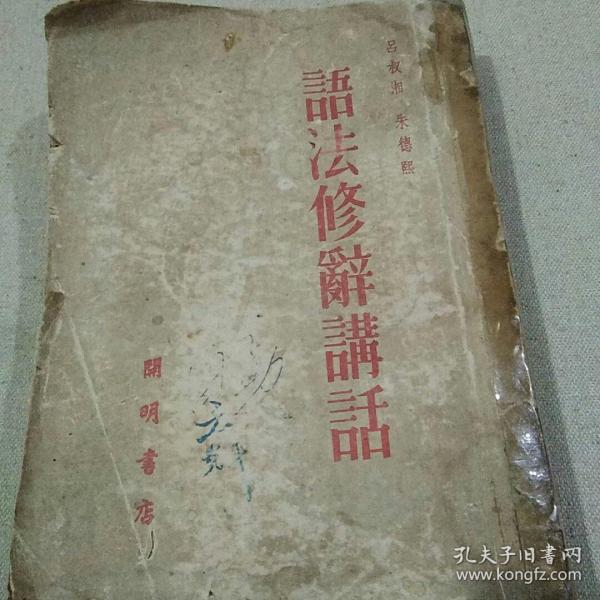 吕叔湘 朱德熙
語法修辭講話
開明書店
孔夫子旧书网
www.kongfz.com